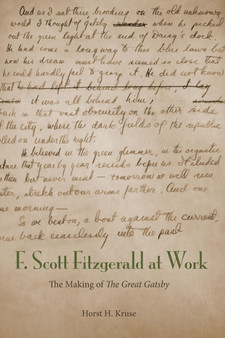 And as I sat there brooding on the old unknown
world I thought of gatsby when he picked
out the green light at the end of Daisy's dock.
He had come a long way to this blue lawn but
now his dream must have seemed so close that
he could hardly fail to grasp it. He did not know
that he had left it behind long before,
it was all behind him,
back in that vast obscurity on the other side
of the city, where the dark fields of the republic
rolled on under the night.
He believed in the green glimmer, in the orgastic
future that year by year recedes before us. It eluded
us then but never mind — tomorrow we will run
faster, stretch out our arms farther, And one
fine morning —
So we beat on, a boat against the current,
borne back ceaselessly into the past
F. Scott Fitzgerald at Work
The Making of The Great Gatsby
Horst H. Kruse